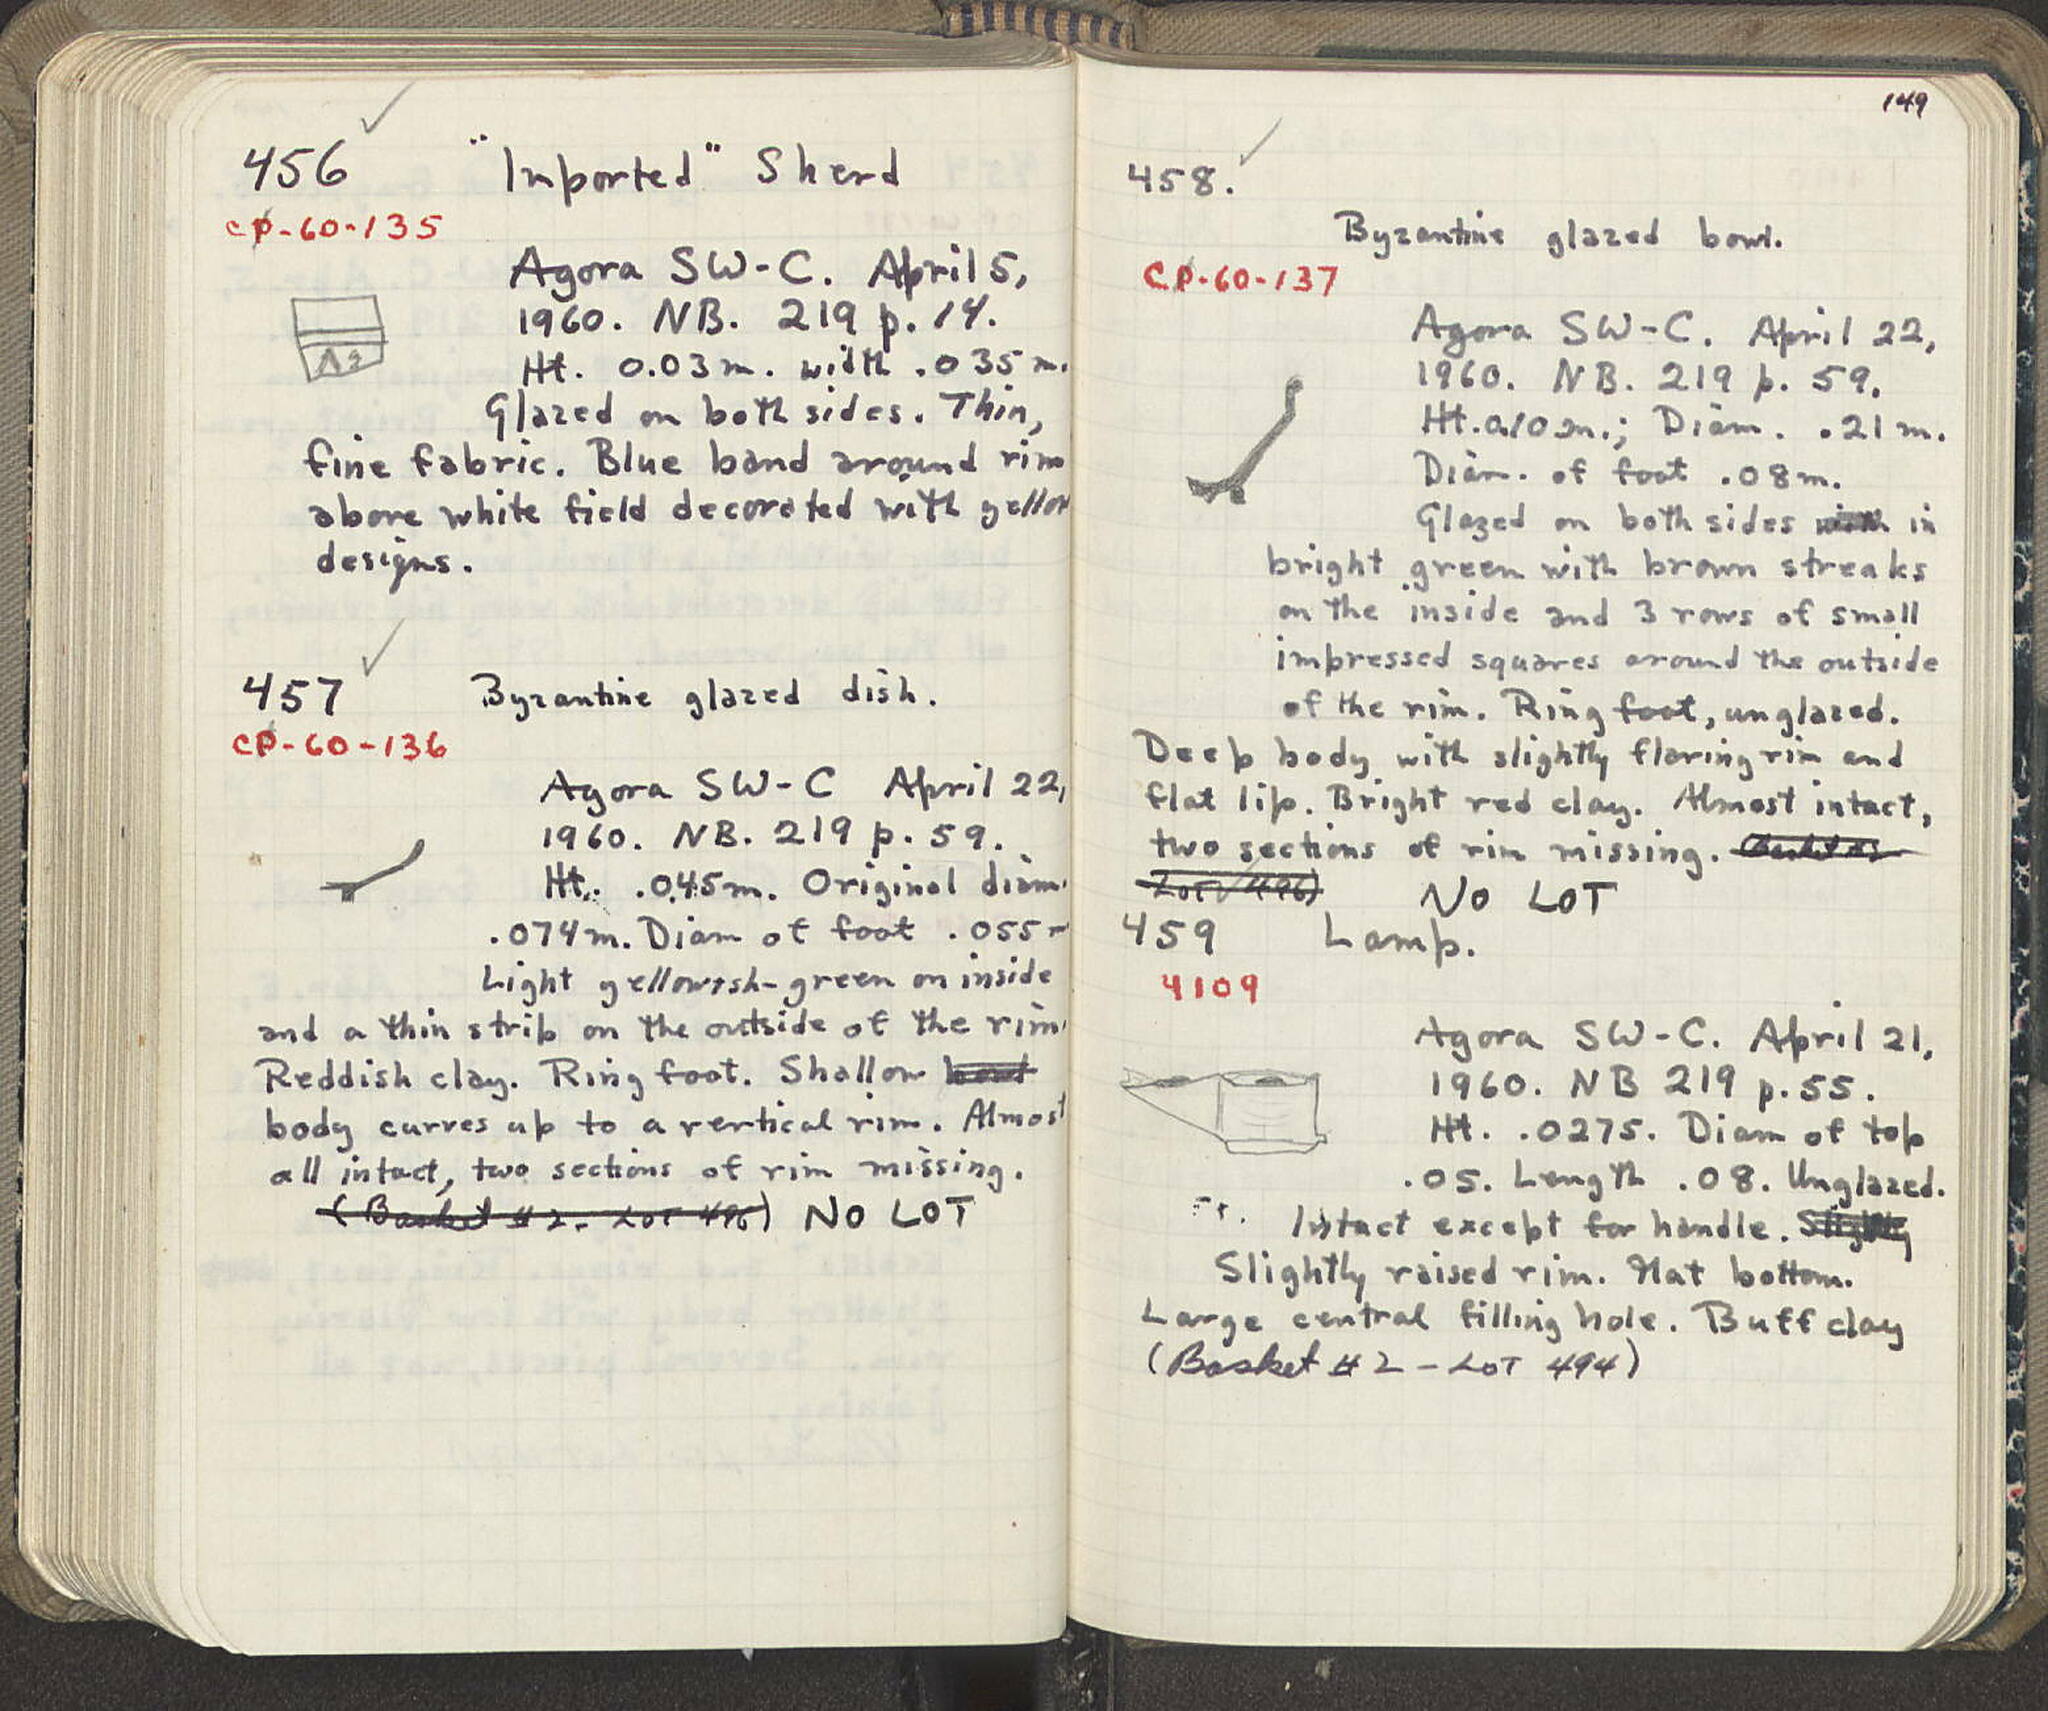 456 "Imported" Sherd
CP-60-135
Agora SW-C. April 5,
1960. NB. 219 p. 14.
Ht. 0.03m. width .035m.
Glazed on both sides. Thin,
fine fabric. Blue band around rim
above white field decorated with yellow
designs.
457 Byzantine glazed dish.
CP-60-136
Agora SW-C April 22,
1960. NB. 219 p. 59.
Ht. .045m. Original diam.
.074m. Diam of foot .055m
Light yellowish-green on inside
and a thin strip on the outside of the rim.
Reddish clay. Ring foot. Shallow bowl
body curves up to a vertical rim. Almost
all intact, two sections of rim missing.
(Basket #2. LOT 496) NO LOT
149
458.
Byzantine glazed bowl.
CP-60-137
Agora SW-C. April 22,
1960. NB. 219 p. 59.
Ht. 0.10m.; Diam. .21m.
Diam. of foot .08m.
Glazed on both sides with in
bright green with brown streaks
on the inside and 3 rows of small
impressed squares around the outside
of the rim. Ring foot, unglazed.
Deep body with slightly flaring rim and
flat lip. Bright red clay. Almost intact,
two sections of rim missing.
LOT 496) NO LOT
459 Lamp.
4109
Agora SW-C. April 21,
1960. NB 219 p. 55.
Ht. .0275. Diam of top
.05. Length .08. Unglazed.
Intact except for handle. Slightly
Slightly raised rim. Flat bottom.
Large central filling hole. Buff clay
(Basket #2 - LOT 494)